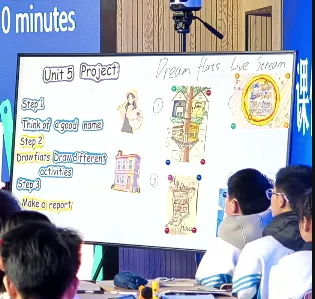 0 minutes
Unit 5 Project
Dream flats Live Stream
Step1
Think of a good name
Step 2
Draw flats Draw different
activities
Step3
Make a report
课